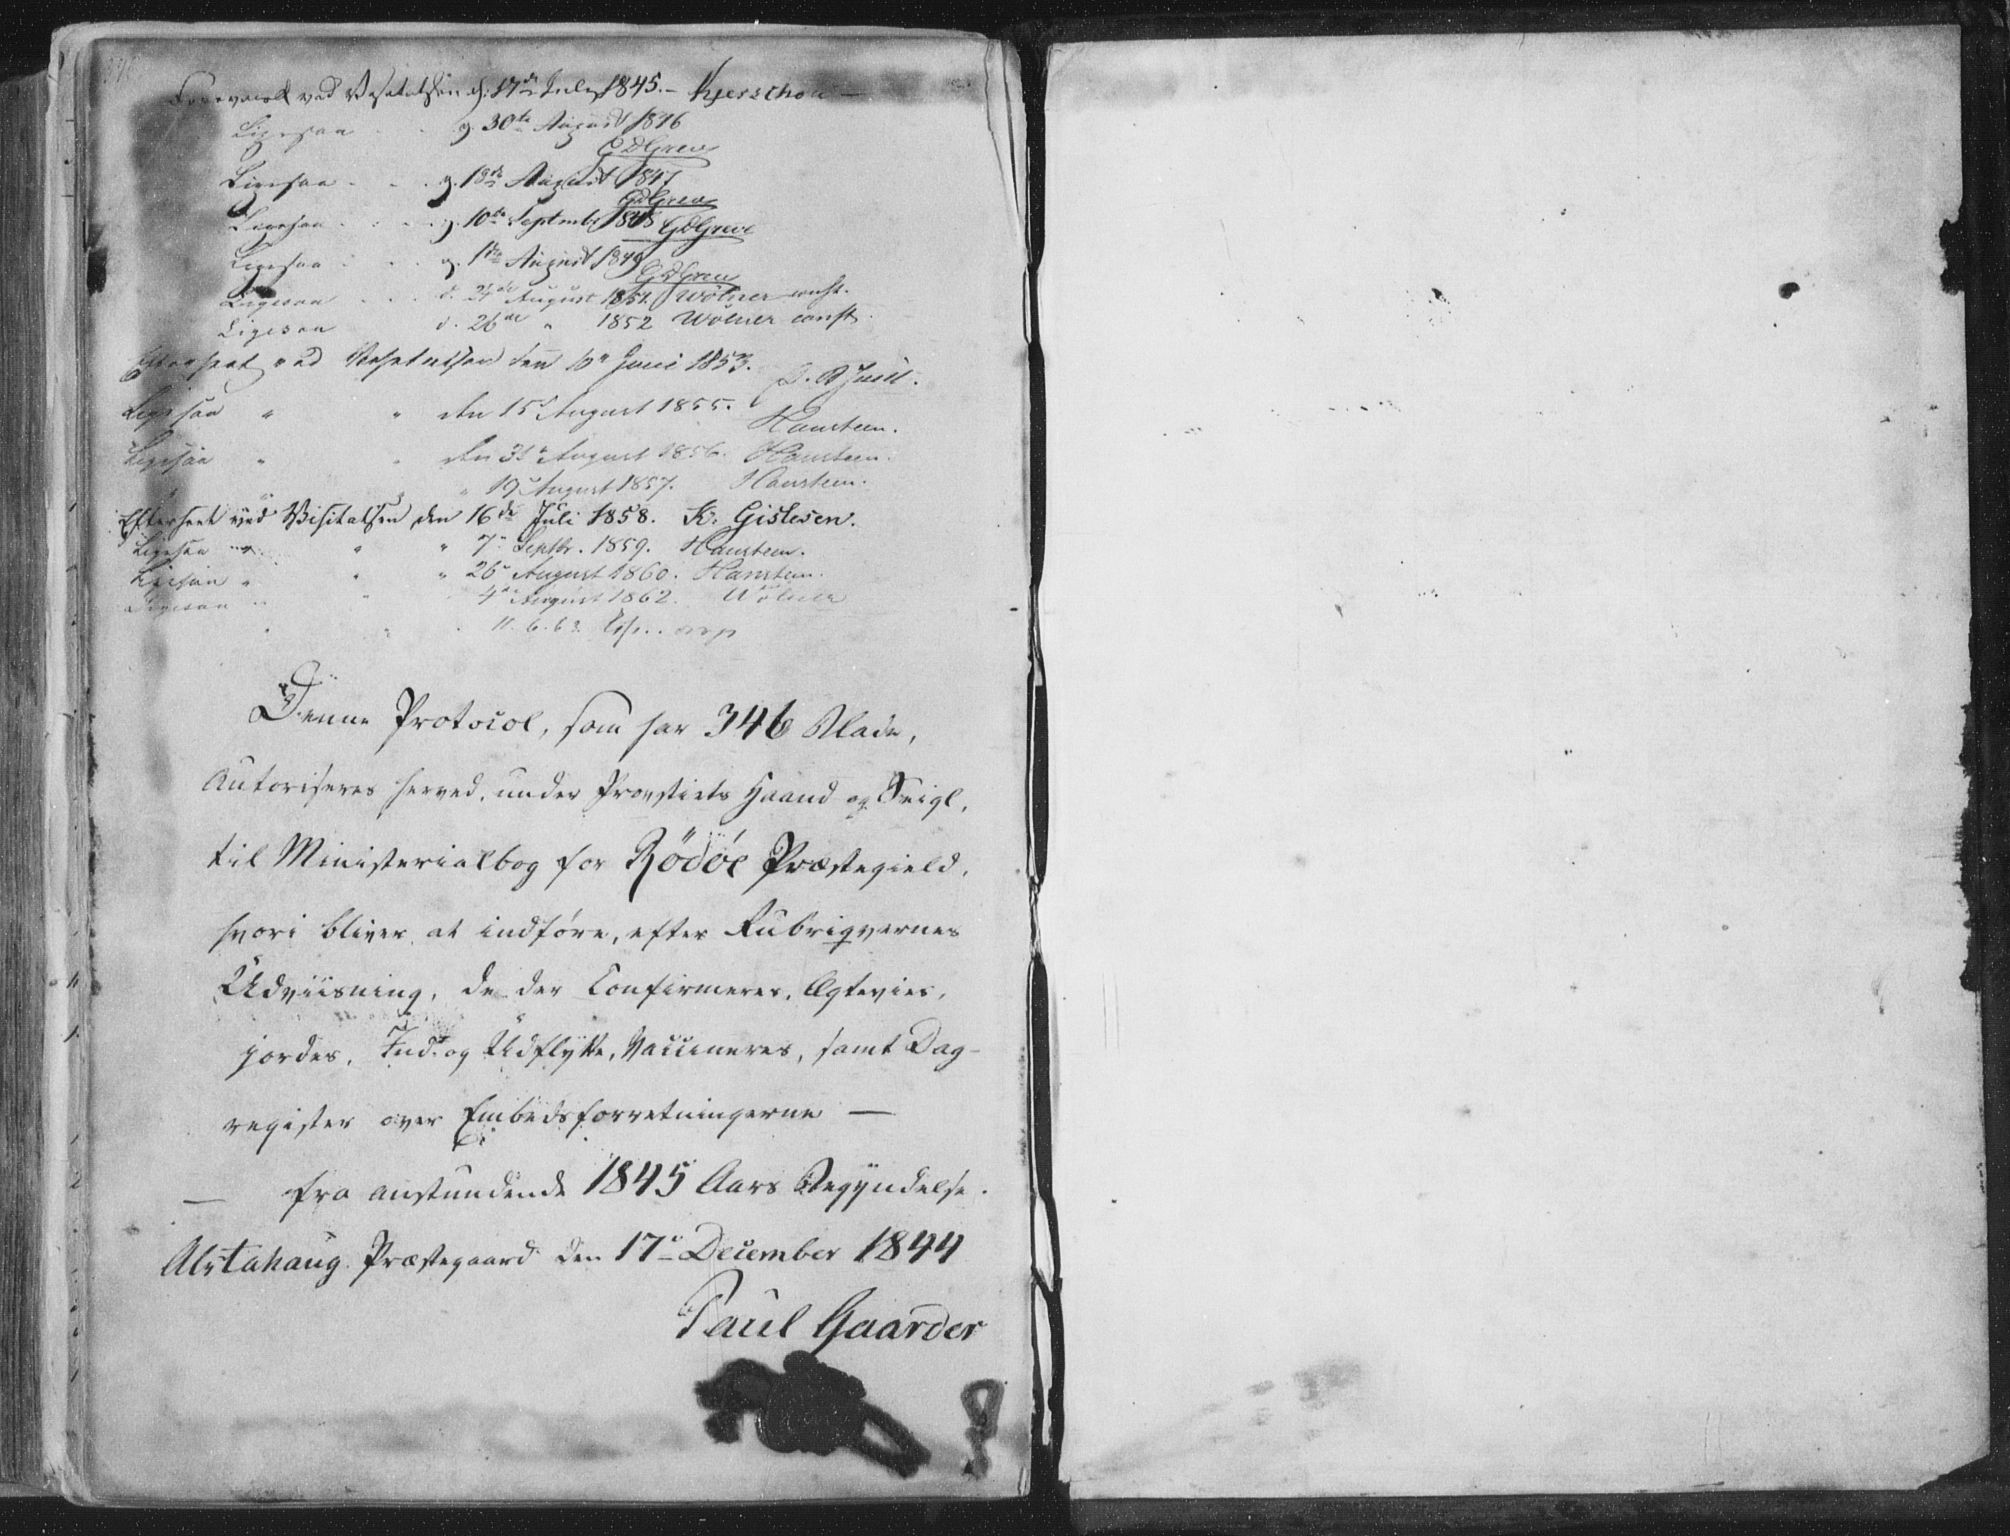 Foreviist ved Visitatsen d: 17de Juli 1845. – Kjerschou –
Ligesaa . . g. 30te August 1846
GDGreve
Ligesaa . . . g. 18de August 1847
GDGreve
Ligesaa . . . g. 10de Septembr 1848 GDGreve
Ligesaa . . . g. 1ste August 1849
GDGreve
Ligesaa . . . d. 24de August 1851. Wolner const.
Ligesaa d. 26de " 1852 Wolner const.
Efterseet ved Visitatsen den 10n Juni 1853.
Ligesaa " " den 15d August 1855.
Hansteen.
Ligesaa " " den 31n August 1856. Hansteen.
" 19 August 1857. Hansteen.
Efterseet ved Visitatsen den 16de Juli 1858. K. Gislesen.
Ligesaa " " " 7n Septbr. 1859. Hansteen.
Ligesaa " " " 26n August 1860. Hansteen.
Ligesaa " " 4de August 1862. Wolner
11.6.63
Denne Protocol, som har 346 Blade,
Autoriseres herved, under Provstiets Haand og Seigl,
til Ministerialbog for Rödöe Præstegield,
hvori bliver at indføre, efter Rubriqvernes
Udviisning, de der Confirmeres, Ægtevies,
jordes, Ind- og Udflytte, Vaccineres, samt Dag-
register over Embedsforretningerne —
— fra anstundende 1845 Aars Begyndelse.
Alstahaug Præstegaard den 17e December 1844
Paul Gaarder